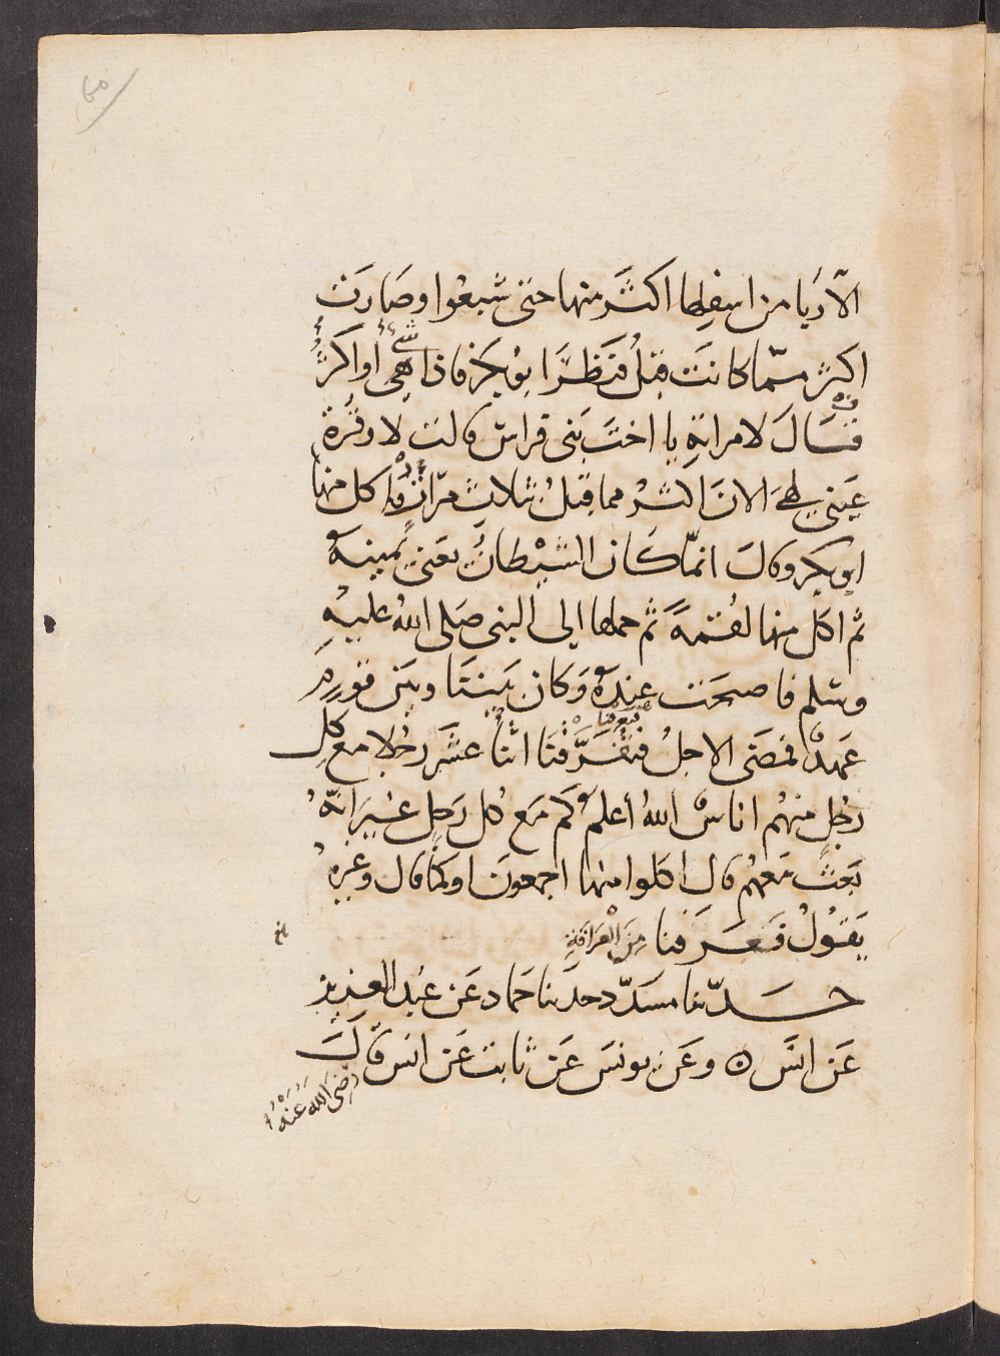 الا ربا من اسفلها اكثر منها حتى شبعوا وصارت
اكثر مما كانت قبل فنظر ابو بكر فاذا هي شيء او اكثر
فقال لامراته يا اخت بني فراس قالت لا وقرة
عيني لهي الان اكثر مما قبل بثلاث مرات فاكل منها
ابو بكر وقال انما كان الشيطان يعني يمينه
ثم اكل منها لقمة ثم حملها الى النبي صلى الله عليه
وسلم فاصبحت عنده وكان بيننا وبين قوم
عهد فمضى الاجل فتفرقنا اثنا عشر رجلا مع كل
رجل منهم اناس الله أعلم كم مع كل رجل غير انه
بعث معهم قال اكلوا منها اجمعون او كما قال وغيره
يقول فعرفنا من العرافة
حدثنا مسدد حدثنا حماد عن عبد العزيز
عن انس ٥ وعن يونس عن ثابت عن انس قال
رضي الله عنه